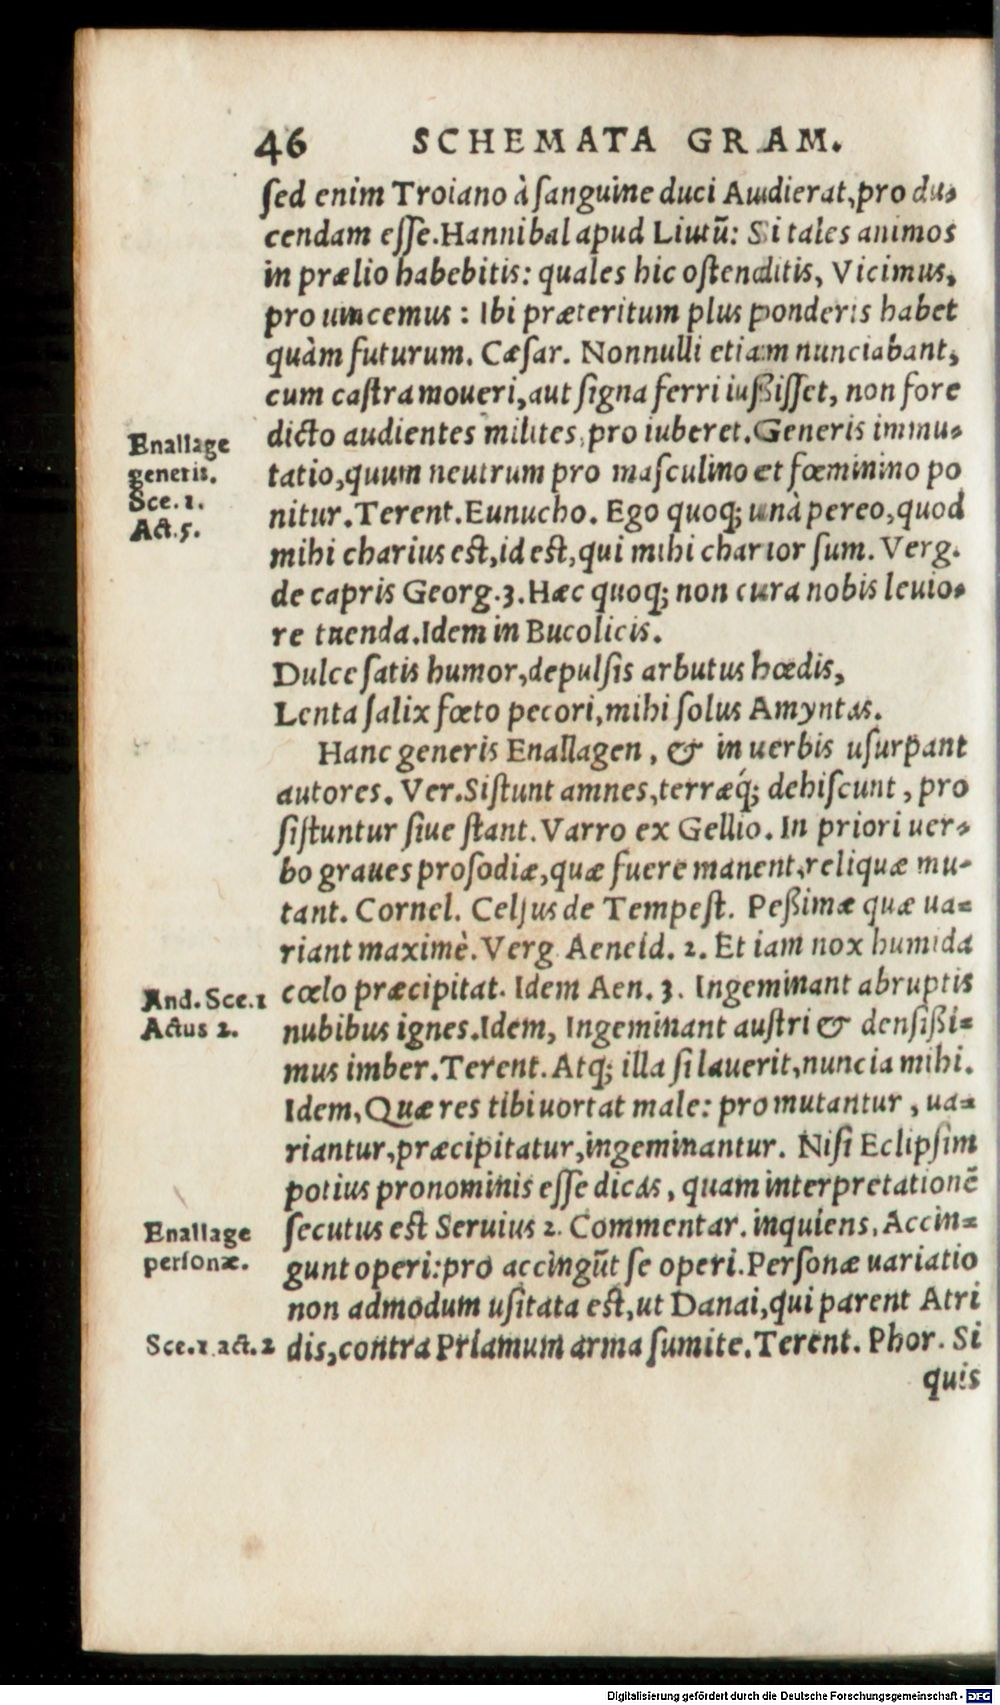 46 SCHEMATA GRAM.
ſed enim Troiano à ſanguine duci Audierat, pro du-
cendam eſſe. Hannibal apud Liuiū: Si tales animos
in prælio habebitis: quales hic oſtenditis, Vicimus,
pro uincemus: Ibi præteritum plus ponderis habet
quàm futurum. Cæſar. Nonnulli etiam nunciabant,
cum caſtra moueri, aut ſigna ferri iußiſſet, non fore
dicto audientes milites, pro iuberet. Generis immu-
Enallage
generis.
Sce. 1.
Act. 5.
tatio, quum neutrum pro maſculino et fœminino po
nitur. Terent. Eunucho. Ego quoq; unà pereo, quod
mihi charius est, id est, qui mihi charior ſum. Verg.
de capris Georg. 3. Hæc quoq; non cura nobis leuio-
re tuenda. Idem in Bucolicis.
Dulce ſatis humor, depulſis arbutus hœdis,
Lenta ſalix fœto pecori, mihi ſolus Amyntas.
Hanc generis Enallagen, & in uerbis uſurpant
autores. Ver. Siſtunt amnes, terræq́; dehiſcunt, pro
ſiſtuntur ſiue ſtant. Varro ex Gellio. In priori uer-
bo graues proſodiæ, quæ fuere manent, reliquæ mu-
tant. Cornel. Celſus de Tempeſt. Peßimæ quæ ua-
riant maximè. Verg. Aeneid. 2. Et iam nox humida
cœlo præcipitat. Idem Aen. 3. Ingeminant abruptis
And. Sce. 1
Actus 2.
nubibus ignes. Idem, Ingeminant auſtri & denſißi-
mus imber. Terent. Atq; illa ſi lauerit, nuncia mihi.
Idem, Quæ res tibi uortat male: pro mutantur, ua-
riantur, præcipitatur, ingeminantur. Niſi Eclipſim
potius pronominis eſſe dicas, quam interpretationē
ſecutus est Seruius 2. Commentar. inquiens, Accin-
Enallage
perſonæ.
gunt operi: pro accingūt ſe operi. Perſonæ uariatio
non admodum uſitata est, ut Danai, qui parent Atri
dis, contra Priamum arma ſumite. Terent. Phor. Si
Sce. 1 act. 2
quis
Digitalisierung gefördert durch die Deutsche Forschungsgemeinschaft - DFG